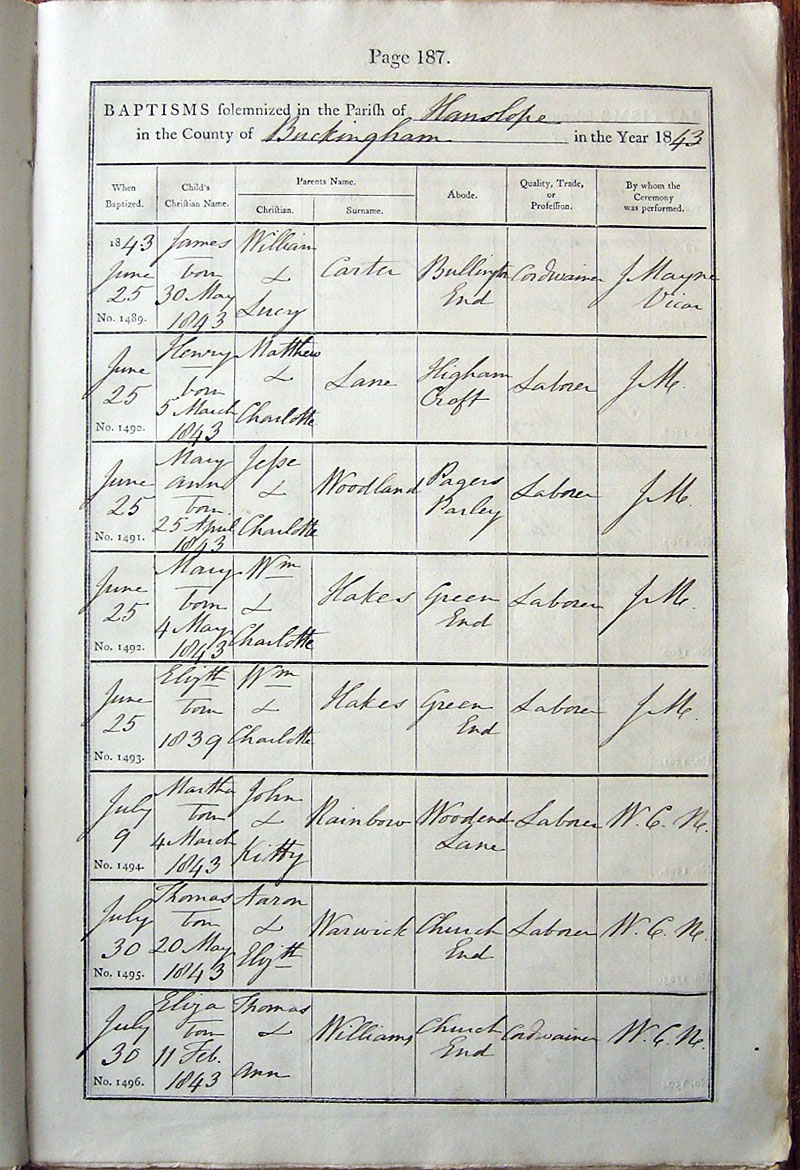 Page 187.
BAPTISMS solemnized in the Parish of Hanslope
in the County of Buckingham in the Year 1843
When Baptized.
Child's Christian Name.
Parents Name.
Christian.
Surname.
Abode.
Quality, Trade, or Profession.
By whom the Ceremony was performed.
1843
June
25
No. 1489.
James
born
30 May
1843
William
&
Lucy
Carter
Bullington
End
Cordwainer
J Mayne
Vicar
June
25
No. 1490.
Henry
born
5 March
1843
Matthew
&
Charlotte
Lane
Higham
Croft
Laborer
J M.
June
25
No. 1491.
Mary
ann
born
25 April
1843
Jesse
&
Charlotte
Woodland
Pagers
Parley
Laborer
J M.
June
25
No. 1492.
Mary
born
4 May
1843
Wm
&
Charlotte
Hakes
Green
End
Laborer
J M.
June
25
No. 1493.
Elizth
born
1839
Wm
&
Charlotte
Hakes
Green
End
Laborer
J M.
July
9
No. 1494.
Martha
born
4 March
1843
John
&
Kitty
Rainbow
Woodend
Lane
Laborer
W. C. N.
July
30
No. 1495.
Thomas
born
20 May
1843
Aaron
&
Elizth
Warwick
Church
End
Laborer
W. C. N.
July
30
No. 1496.
Eliza
born
11 Feb.
1843
Thomas
&
Ann
Williams
Church
End
Cordwainer
W. C. N.